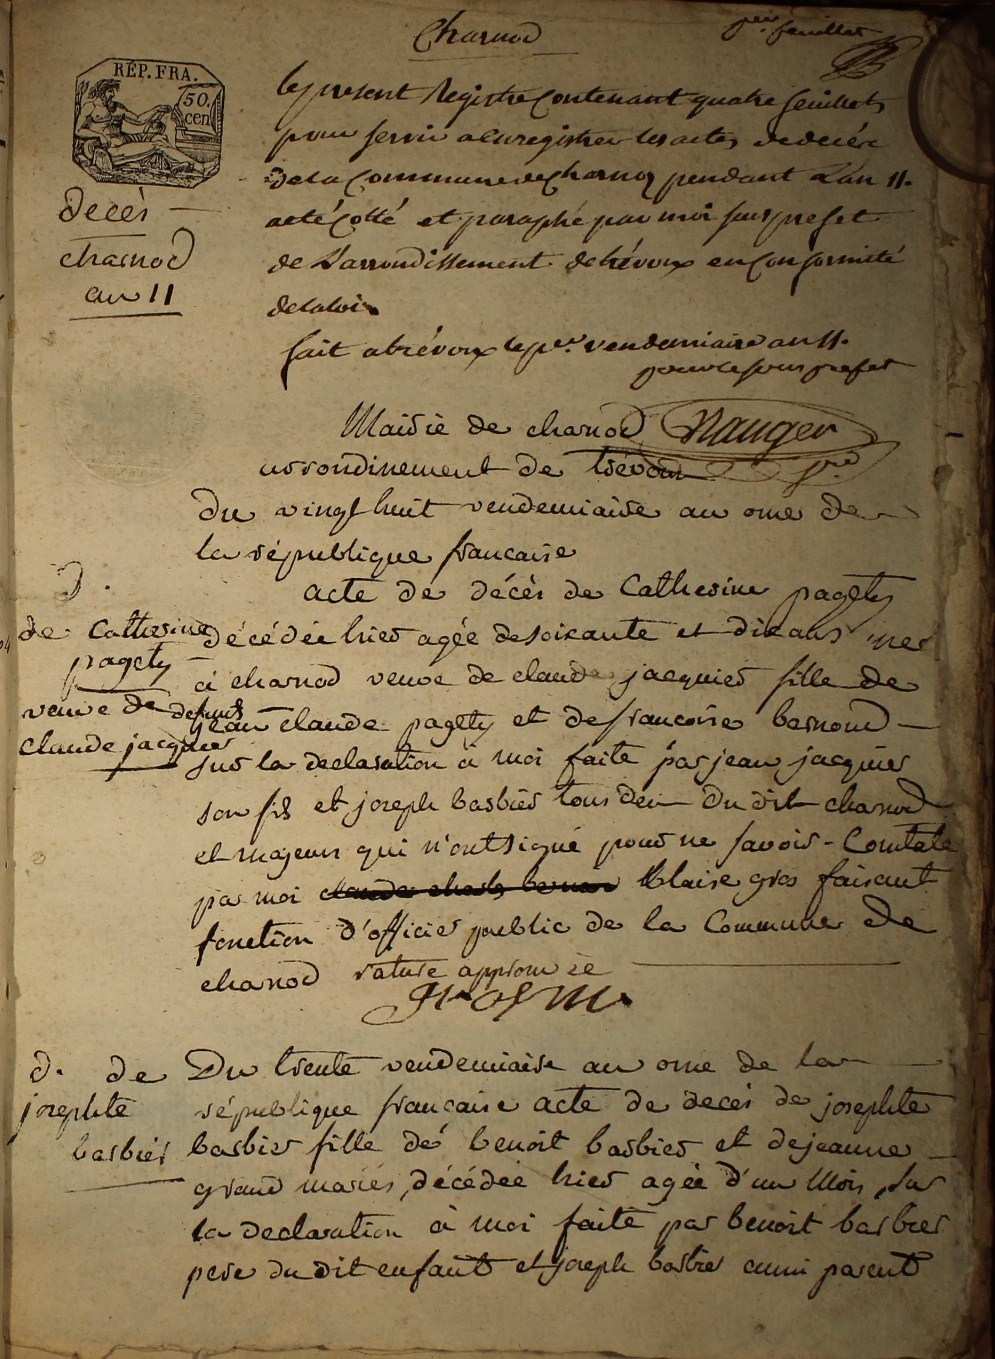 Charnod
per feuillet
RÉP. FRA.
50.
cen
decès
charnod
an 11
le present Registre Contenant quatre feuillets
pour servir a Enregistrer les actes de decès
de la Commune de Charnoz pendant L'an 11.
a été Cotté et paraphé par moi sous prefet
de L'arrondissement de trévoux en Conformité
de la loi
fait a trévoux le per. vendemiaire an 11.
pour le sous prefet
Mairie de charnod Nauger
arrondinement de trévoux
du vingt huit vendemiaire an onze de
la république francaise
acte de décès de Catherine pagety
d.
de Catherine
pagety
veuve de defunt
claude jacquier
décédée hier agée de soixante et dix ans née
à charnod veuve de claude jacquier fille de
jean claude pagety et de francoise bernond
sur la declaration à moi faite par jean jacquier
son fils et joseph barbier tous deux du dit charnod
et majeurs qui n'ont signé pour ne savoir - Constaté
par moi claude charles bernon Blaise gros faisant
fonction d'officier public de la Commune de
charnod rature approuvée
Gros M
d. de
josephte
barbier
Du trente vendemiaire an onze de la
république francaise acte de decès de josephte
barbier fille de benoit barbier et de jeanne
grand mariés, décédée hier agée d'un Mois, sur
la declaration à moi faite par benoit barbier
pere du dit enfant et joseph barbier aussi parent